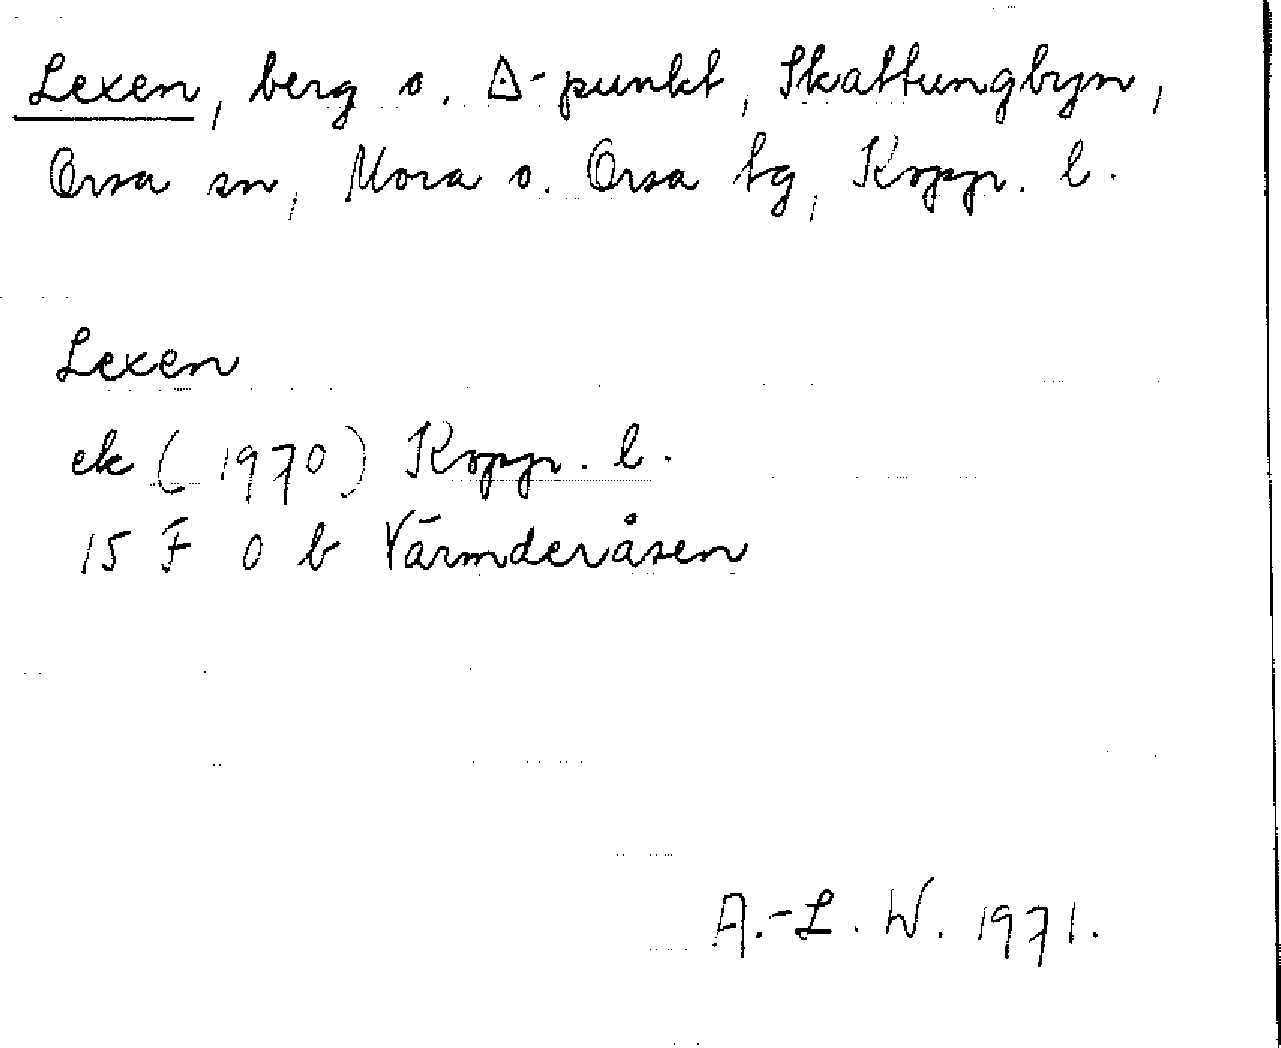 Lexen, berg o. △-punkt, Skattungbyn,
Orsa sn, Mora o. Orsa tg, Kopp. l.
Lexen
ek (1970) Kopp. l.
15 F 0 b Värmderåsen
A.-L. W. 1971.